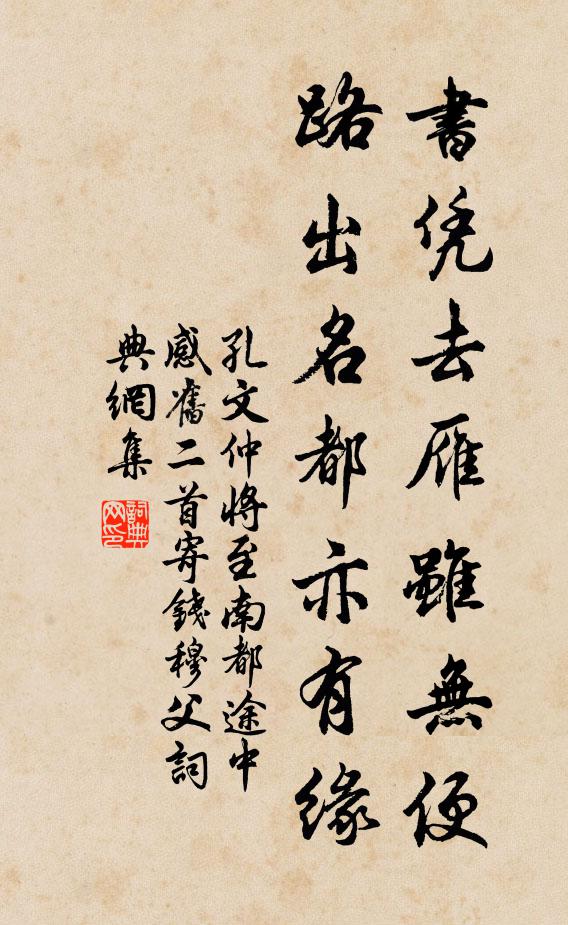 書凭去雁雖無便
路出名都亦有緣
孔文仲將至南都途中
感舊二首寄錢穆父詞
典網集
詞典
网印